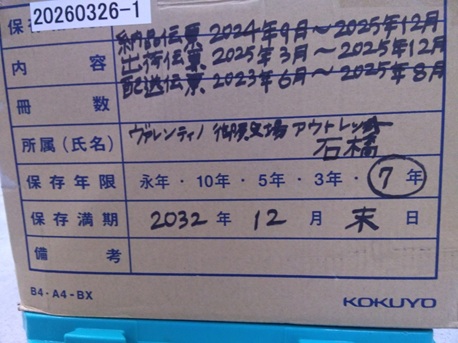 20260326-1
保
内容
納品伝票 2024年9月～2025年12月
出荷伝票 2025年3月～2025年12月
配送伝票 2023年6月～2025年8月
冊数
所属(氏名) ヴァレンティノ 御殿場アウトレット
石橋
保存年限 永年・10年・5年・3年・7年
保存満期 2032年 12月 末日
備考
B4-A4-BX
KOKUYO